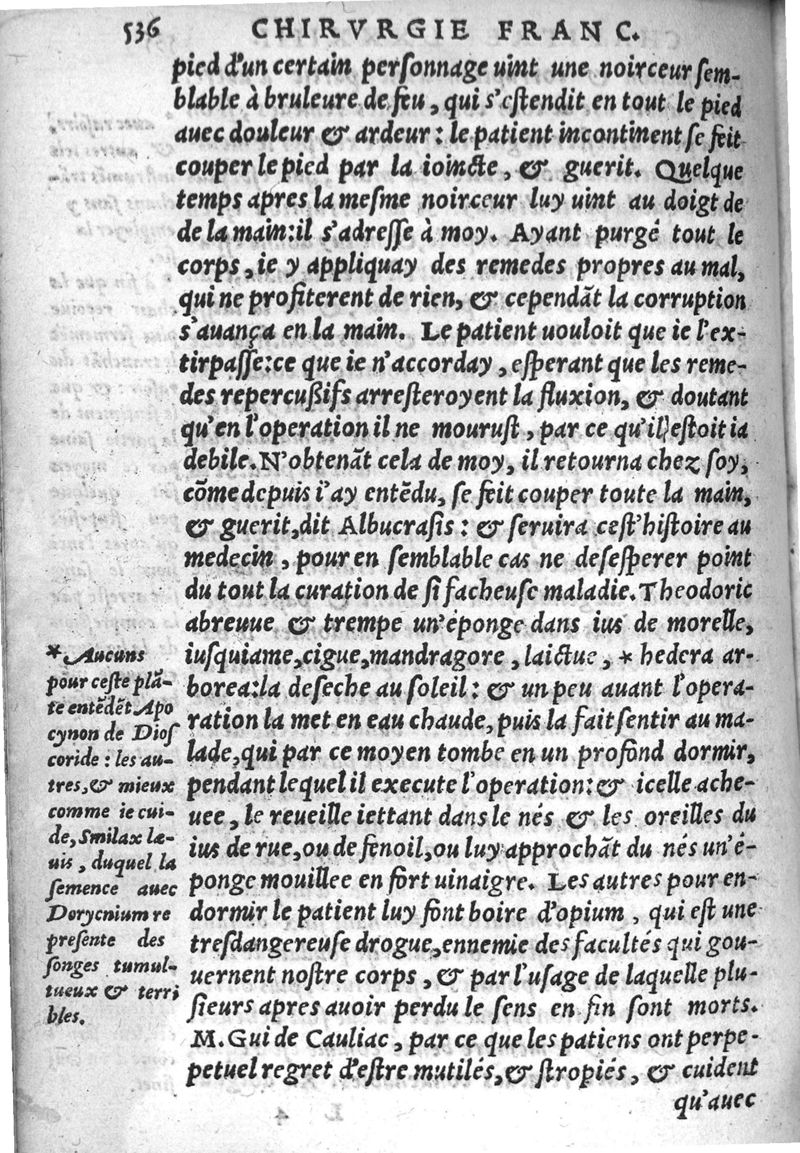 536 CHIRVRGIE FRANC.
pied d'un certain personnage uint une noirceur sem-
blable à bruleure de feu, qui s'estendit en tout le pied
auec douleur & ardeur : le patient incontinent se feit
couper le pied par la ioincte, & guerit. Quelque
temps apres la mesme noirceur luy uint au doigt de
de la main:il s'adresse à moy. Ayant purgé tout le
corps, ie y appliquay des remedes propres au mal,
qui ne profiterent de rien, & cependãt la corruption
s'auança en la main. Le patient uouloit que ie l'ex-
tirpasse:ce que ie n'accorday, esperant que les reme-
des repercußifs arresteroyent la fluxion, & doutant
qu'en l'operation il ne mourust, par ce qu'il estoit ia
debile. N'obtenãt cela de moy, il retourna chez soy,
cõme depuis i'ay entẽdu, se feit couper toute la main,
& guerit, dit Albucrasis : & seruira cest'histoire au
medecin, pour en semblable cas ne desesperer point
du tout la curation de si facheuse maladie. Theodoric
abreuue & trempe un'éponge dans ius de morelle,
iusquiame, cigue, mandragore, laictue, * hedera ar-
borea:la deseche au soleil : & un peu auant l'opera-
ration la met en eau chaude, puis la fait sentir au ma-
lade, qui par ce moyen tombe en un profond dormir,
pendant lequel il execute l'operation: & icelle ache-
uee, le reueille iettant dans le nés & les oreilles du
ius de rue, ou de fenoil, ou luy approchãt du nés un'é-
ponge mouillee en fort uinaigre. Les autres pour en-
dormir le patient luy font boire d'opium, qui est une
tresdangereuse drogue, ennemie des facultés qui gou-
uernent nostre corps, & par l'usage de laquelle plu-
sieurs apres auoir perdu le sens en fin sont morts.
M. Gui de Cauliac, par ce que les patiens ont perpe-
petuel regret d'estre mutilés, & stropiés, & cuident
qu'auec
* Aucuns
pour ceste plã-
te entẽdẽt Apo
cynon de Dios
coride : les au-
tres, & mieux
comme ie cui-
de, Smilax læ-
uis, duquel la
semence auec
Dorycnium re
presente des
songes tumul-
tueux & terri
bles.